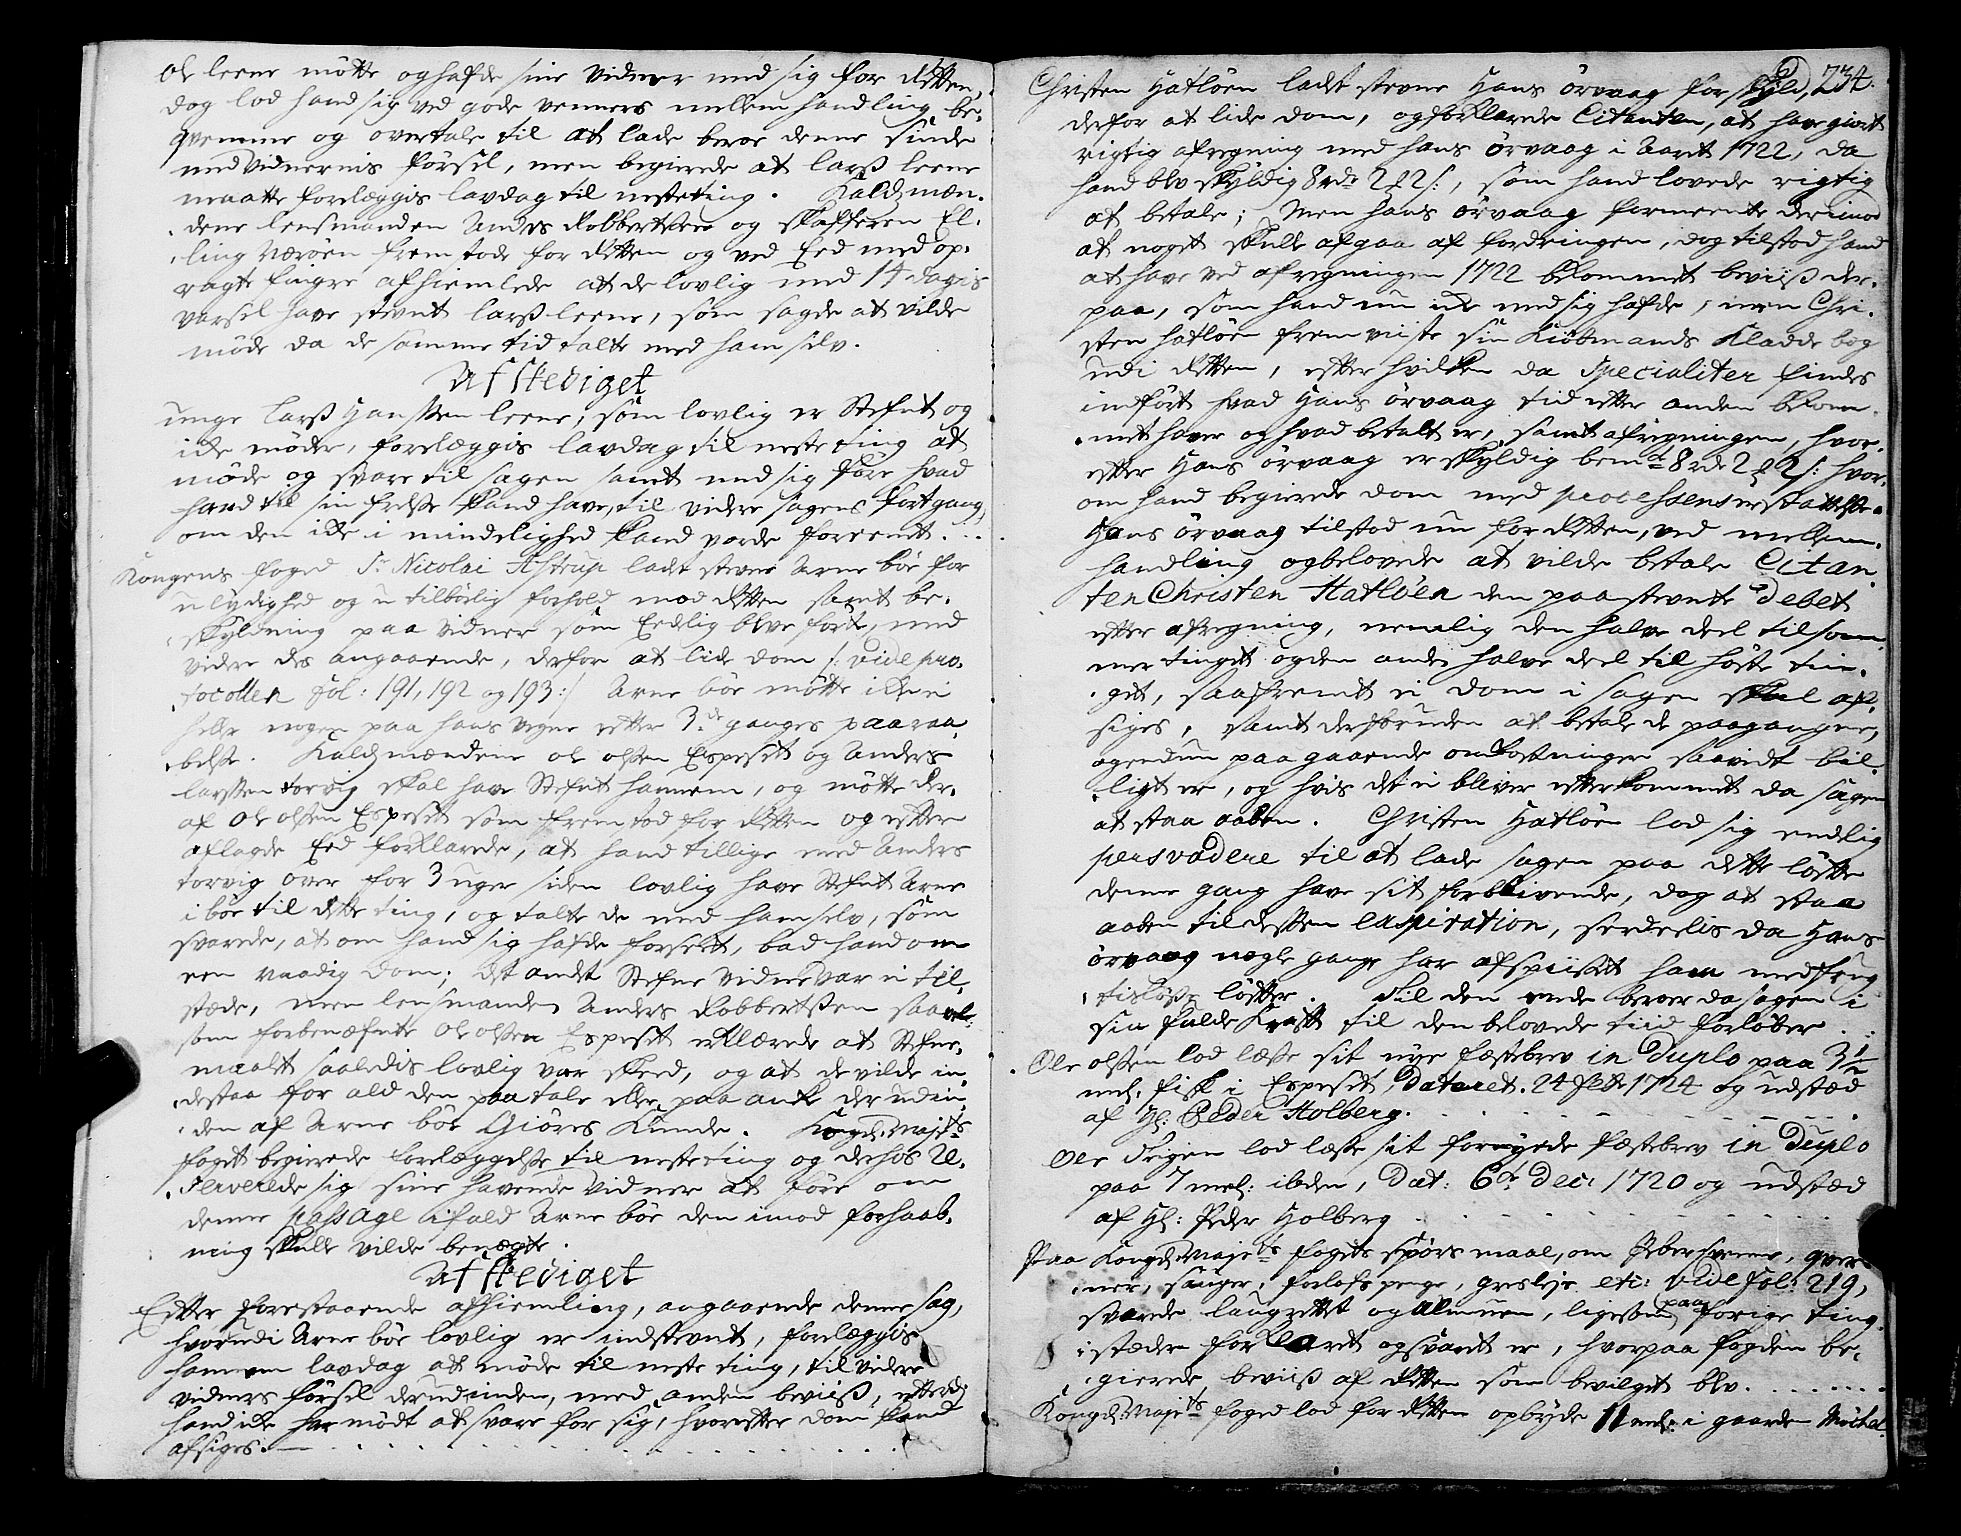 Ole leene mötte og hafde sine vidner med sig for Retten,
dog lod hand sig ved gode venners mellem handling be-
qvemme og overtale til at lade beroe denne sinde
med vidnernis försel, men begierede at Larss leene
maatte forelæggis lavdag til neste ting. Kaldsmæn-
dene lensmanden Anders Robbertsen og skafferen El-
ling Væröen fremstode for Retten og ved Eed med op-
ragte fingre afhiemlede at de lovlig med 14 dagis
varsel have stevnt Larss leene, som sagde at vilde
møde da de samme tid talte med ham selv.
Afskediget
unge Larss Hanssen leene, som lovlig er Stefnt og
icke møder, forelæggis lavdag til neste ting at
møde og svare til sagen samt med sig føre hvad
hand til sin frelse kand have, til videre sagens fortgang,
om den icke i mindelighed kand vorde foreenet. . .
Kongens foged Sr. Nicolai Astrup lader stevne Arne böe for
ulydighed og utilbörlig forhold mod Retten samt be-
skyldning paa vidner som Eedlig blve förte, med
videre des angaaende, derfor at lide dom /: vide pro-
tocollen fol: 191, 192 og 193 :/ Arne böe mötte icke ei
heller nogen paa hans vegne efter 3de ganges paaraa-
belse. Kaldsmændene Ole olsen Espeset og Anders
larssen torvig skal have Stefnt hannem, og mötte der-
af Ole olsen Espeset som fremstod for Retten og efter
aflagde Eed forklarede, at hand tillige med Anders
torvig over for 3 uger siden lovlig have Stefnt Arne
i böe til dette ting, og talte de med ham selv, som
svarede, at om hand sig hafde forseet, bad hand om
een naadig dom; det andet Stefne vidne var ei til-
stæde, men lensmanden Anders Robbertssen saavel
som forbenæfnte Ole olsen Espeset erklærede at Stefne-
maalet saaledis lovlig var skeed, og at de vilde in-
destaa for ald den paatale eller paa anke derudin-
den af Arne böe Giöres kunde. Kongl. Majts
foget begierede forelæggelse til neste ting og derhos re-
serverede sig sine havende vidner at före om
denne passage ifald Arne böe den imod forhaab-
ning skulle vilde benægte.
Afskediget
Efter forestaaende afhiemling, angaaende denne sag,
hvorudi Arne böe lovlig er indstevnt, forelæggis
hannem lavdag at møde til neste ting, til videre
vidners försel derudinden, med anden beviis, efterdj
hand icke har mödt at svare for sig, hvorefter dom kand
afsiges. . . . . . . . . . . . . . . . .
234.
Christen Hatlöen ladet stevne Hans örvaag for skyld,
derfor at lide dom, og forklarede Citanten, at have giort
rigtig afregning med Hans örvaag i Aaret 1722, da
hand blv skyldig 8 rdr 2 2 s:, som hand lovede rigtig
at betale; Men Hans örvaag formeente derimod
at noget skulle afgaa af fordringen, dog tilstod hand
at have ved afregningen 1722 bekommet beviiss der-
paa, som hand nu icke med sig hafde, men Chri-
sten hatlöen fremviiste sin Kiöbmands Kladde bog
udi Retten, efter hvilken da Specialiter findes
indfört hvad Hans örvaag tid efter anden bekom-
met haver og hvad betalt er, samt afregningen, hvor-
efter Hans örvaag er skyldig bemte 8 rdr 2 2 s: hvor-
om hand begierede dom med processens erstattelse.
Hans örvaag tilstod nu for Retten, ved mellem-
handling og belovede at vilde betale Citan-
ten Christen Hatlöen den paastevnte debet
efter afregning, nemlig den halve deel til som-
mer tinget og den andre halve deel til höste tin-
get, saafremt ei dom i sagen skal af-
siges, samt desforuden at betale de paagangne,
og endnu paagaaende omkostninger saavidt bil-
ligt er, og hvis det ei bliver efterkommet da sagen
at staa aaben. Christen Hatlöen lod sig endelig
persvadere til at lade sagen paa dette löfte
denne gang have sit forblivende, dog at staa
aaben til dessen expiration, serdeelis da Hans
örvaag nogle gange har afspiiset ham med frug-
tislöse löfter. Til den ende beroer da sagen i
sin fulde Kraft til den belovede tiid forlöber . :
Ole olsen lod læse sit nye fæstebrev in duplo paa 3½
mel. fisk i Espeset, Dateret. 24 1724 og udstæd
af Hr: Peder Holberg. . . . . . . . . . . .
Ole Teigen lod læse sit fornyede fæstebrev in Duplo
paa 7 mel: ibden, Dat: 6te Dec: 1720 og udstæd
af Hr: Peder Holberg . . . . . . . . . .
Paa Kongl. Majets fogets spörsmaal, om qver-
ner, sauger, forlofs penge, etc: vide fol: 219,
svarede laugrettet og Almuen, ligesom paa forige ting-
stæder forklaret og svaret er, hvorpaa fogden be-
gierede beviiss af Retten som bevilget blv. . . . . . .
Kongl. Majets foged lod for Retten opbyde 11 mel: i gaarden